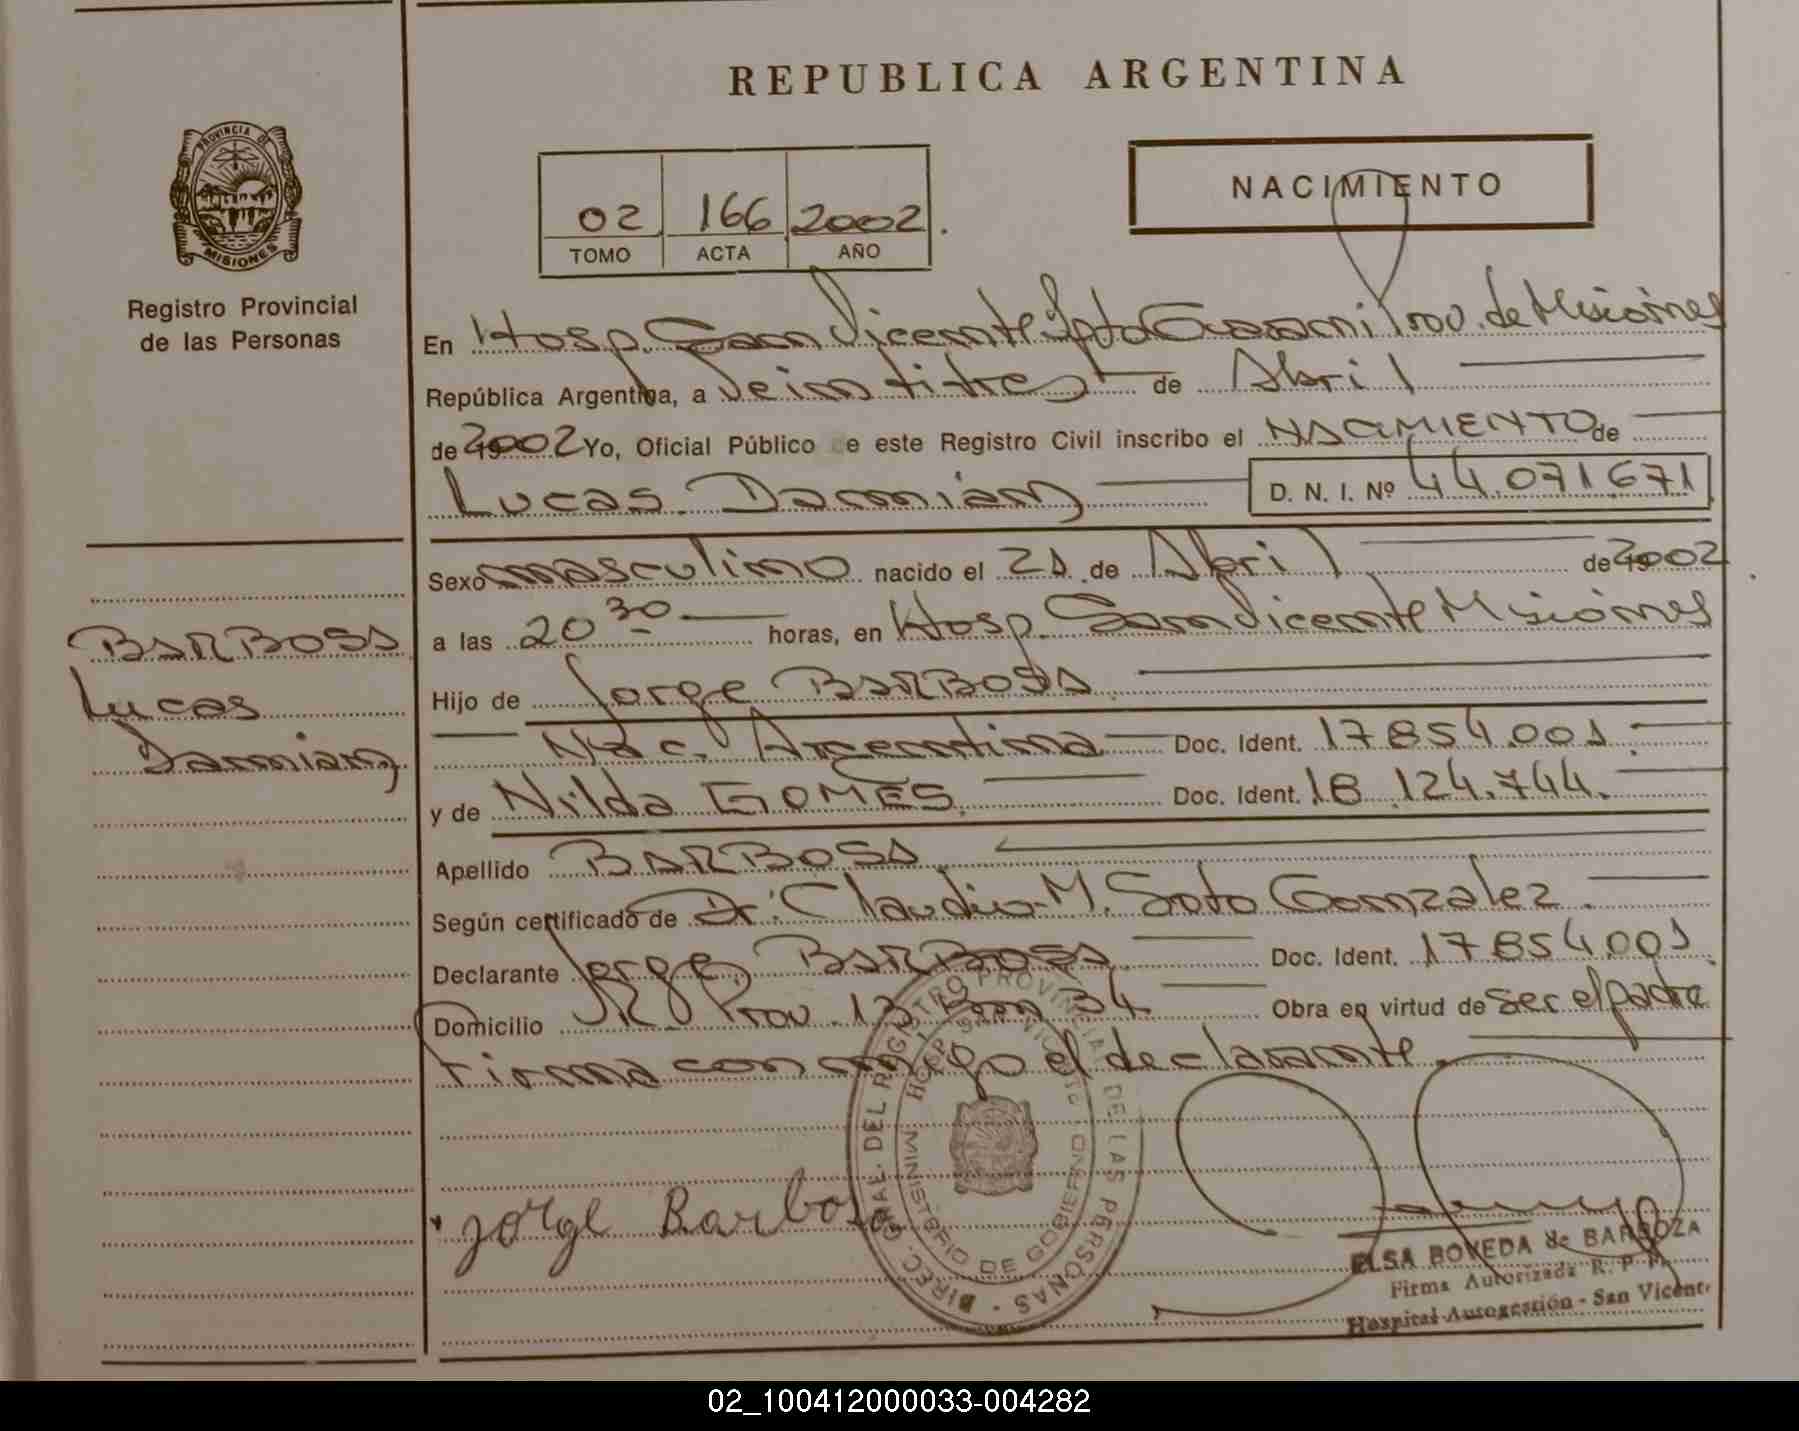 REPUBLICA ARGENTINA
PROVINCIA DE
MISIONES
Registro Provincial
de las Personas
02 166 2002
TOMO ACTA AÑO
NACIMIENTO
En Hosp. San Vicente Dpto Guarani Prov. de Misiones
República Argentina, a Veintitres de Abril
de 2002 Yo, Oficial Público de este Registro Civil inscribo el NACIMIENTO de
Lucas Damian D. N. I. Nº 44.071.671
Sexo masculino nacido el 21 de Abril de 2002
a las 20 30 horas, en Hosp. San Vicente Misiones
Hijo de Jorge BARBOSA
Nac. Argentina Doc. Ident. 17 854.001
y de Nilda GOMES Doc. Ident. 18 124.744.
Apellido BARBOSA
Según certificado de Dr. Claudio M. Soto Gonzalez
Declarante Jorge BARBOSA Doc. Ident. 17 854.001
Domicilio R. Prov. 13 34 Obra en virtud de ser el padre
Firma conmigo el declarante.
BARBOSA
Lucas
Damian
Jorge Barbosa
DIREC. GRAL. DEL REGISTRO PROVINCIAL DE LAS PERSONAS
MINISTERIO DE GOBIERNO
ELSA BOVEDA de BARBOZA
Firma Autorizada R. P. P.
Hospital Autogestión - San Vicente
02_100412000033-004282